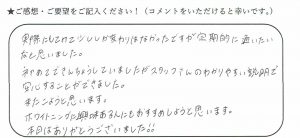 ★ご感想・ご要望をご記入ください！（コメントをいただけると幸いです。）
実際にもそれほどいししか変わりはなかったですが定期的に通いたい
なと思いました。
初めてできんちょうしていましたがスタッフさんのわかりやすい説明で
安心することができました。
またこようと思います。
ホワイトニングに興味ある人にもおすすめしようと思います。
本日はありがとうございました!!